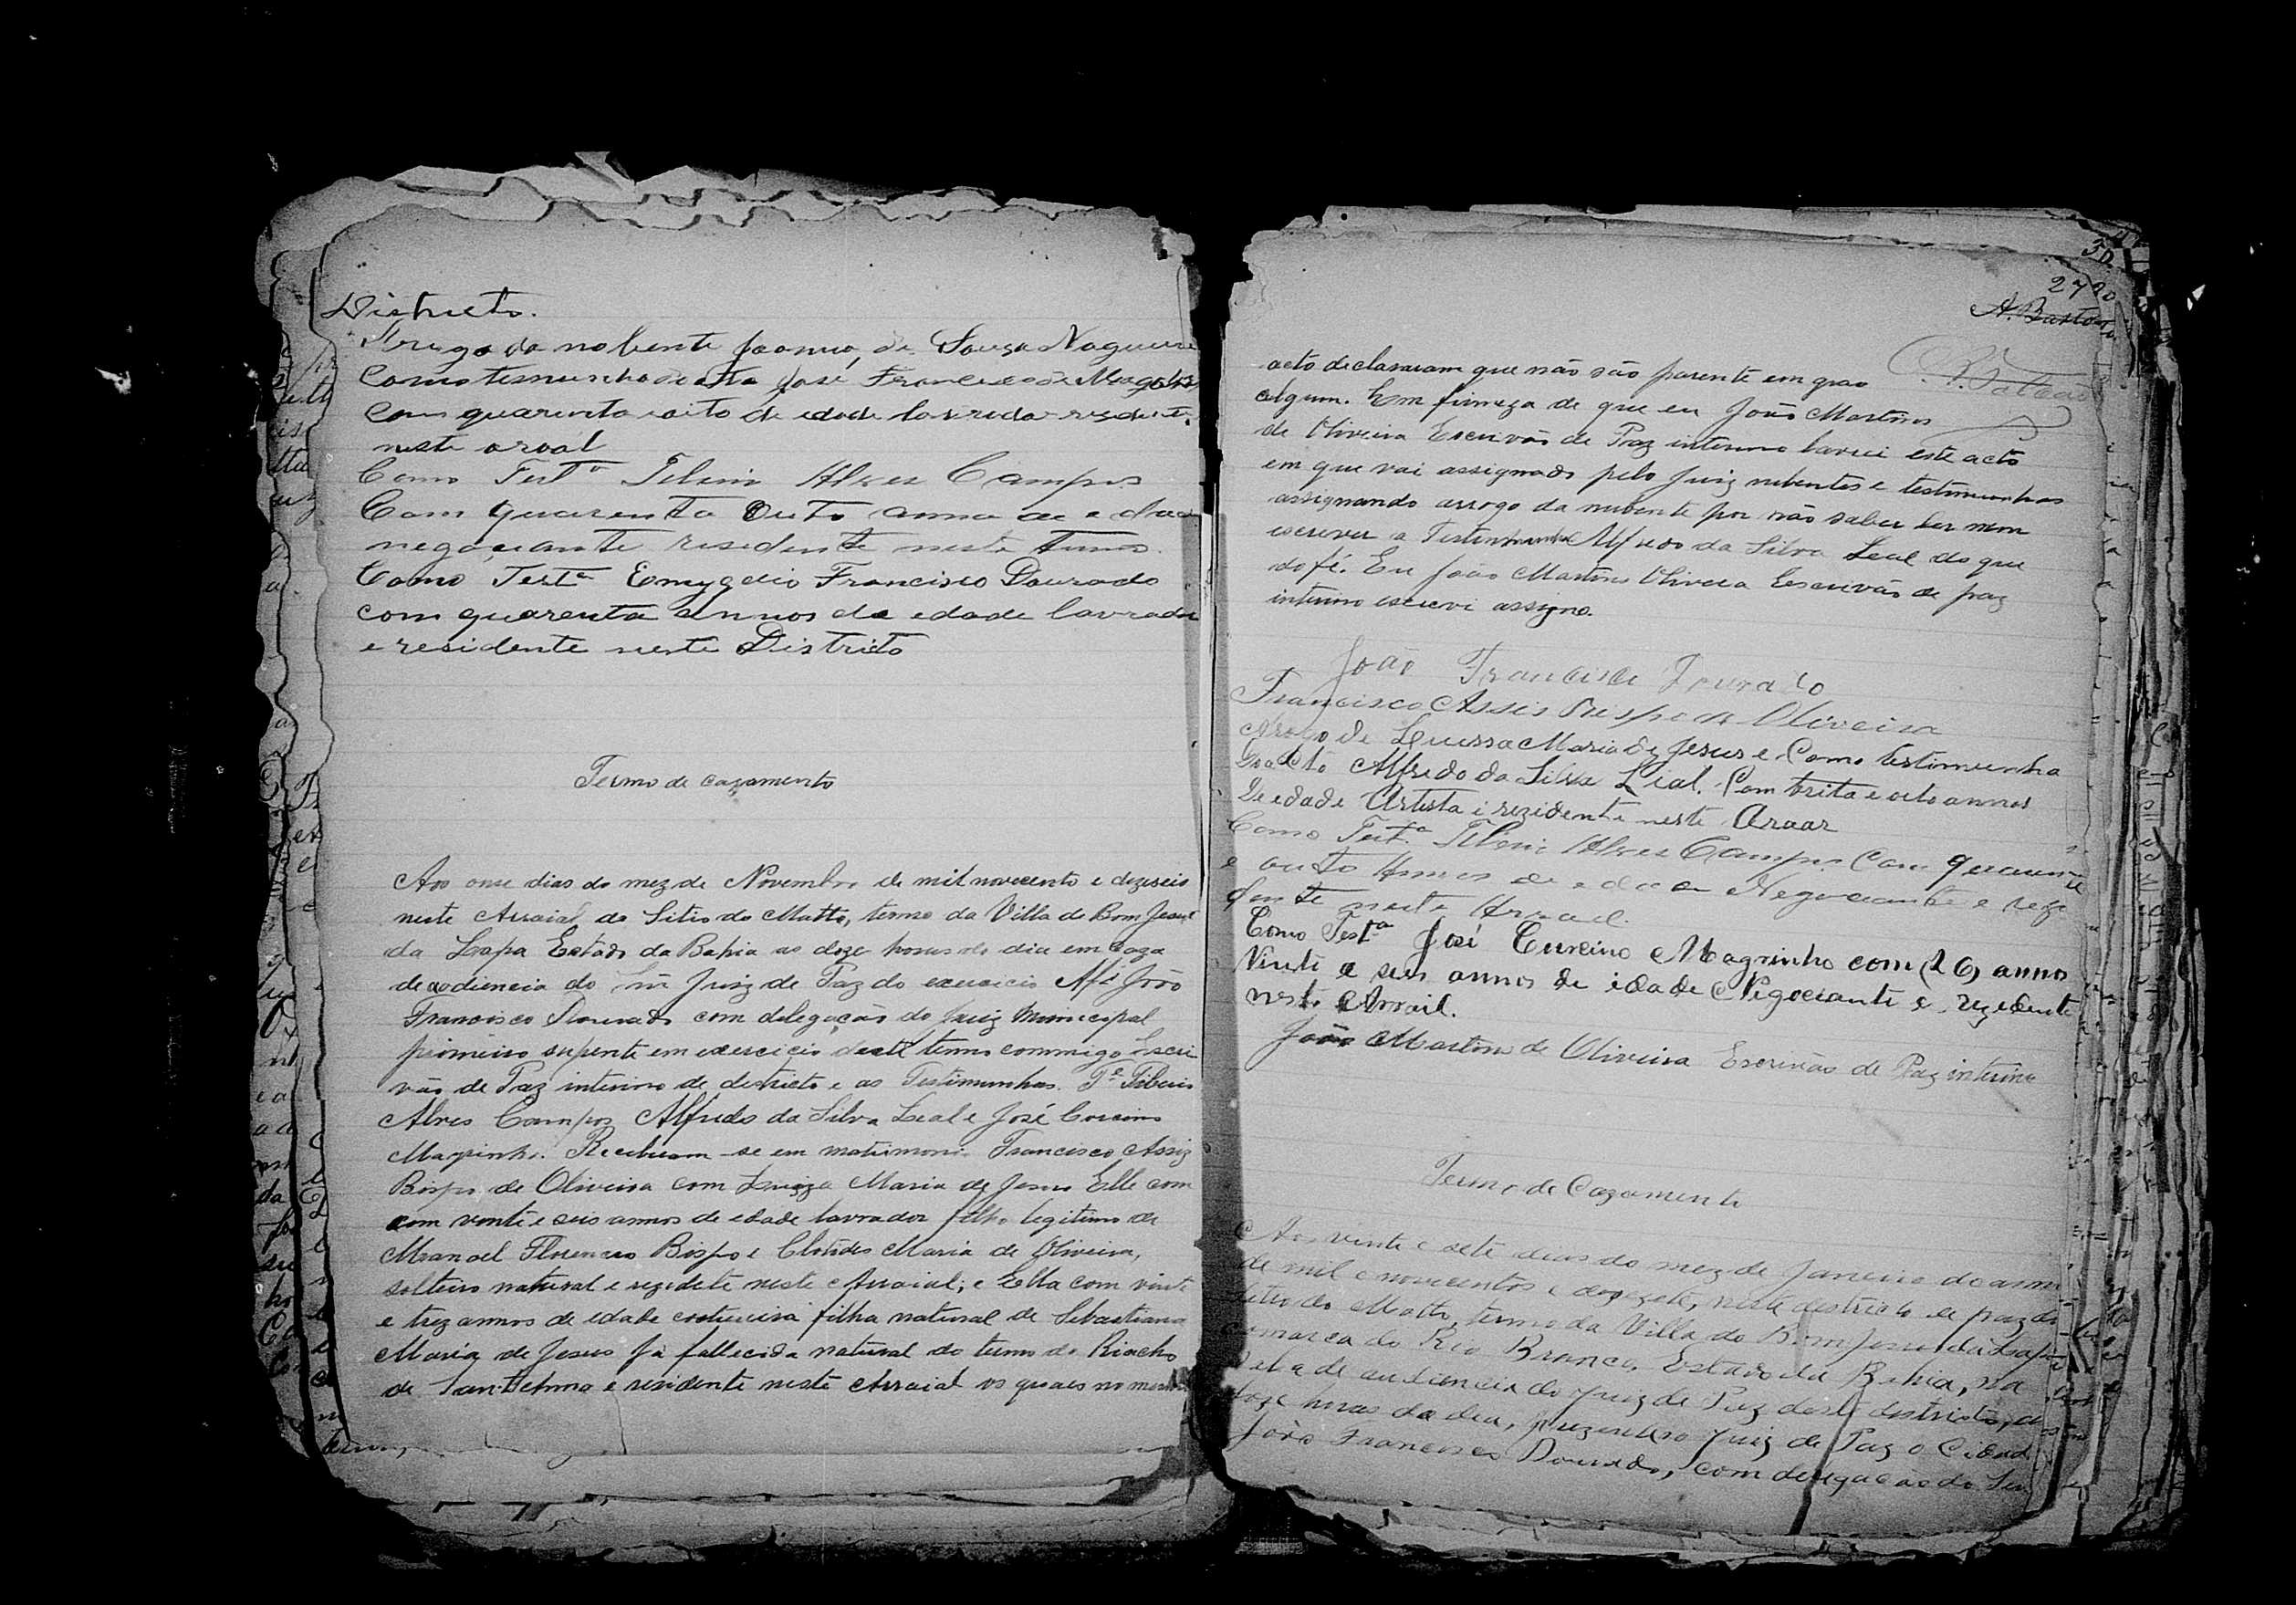 Districto.
Arogo da nobente Joanna de Souza Nogueira
Como testimunha do acto José Francisco de Magalhs
com quarenta e oito de edade lavrador residente
neste aroal
Como Test.ª Tiberio Alves Campos
Com quarenta Outo annos de edade
negociante residente neste termo.
Como Test.ª Emygdio Francisco Dourado
com quarenta annos de edade lavrador
e residente neste Districto
Termo de cazamento
Aos onse dias do mez de Novembro de mil novecento e dezeseis
neste Arraial do Sitio do Matto, termo da Villa de Bom Jesus
da Lapa Estado da Bahia as doze horas do dia em caza
de audiencia do Juiz de Paz do exercicio João
Francisco Dourado com delegação do Juiz Municipal
primeiro suplente em exercicio deste termo commigo Escri
vão de Paz interino de districto e as Testimunhas Tiberio
Alves Campos Alfredo da Silva Leal e José Corcino
Magrinho. Receberam-se em matrimonio Francisco Assiz
Bispo de Oliveira com Luiza Maria de Jesus Elle com
com vinte e seis annos de edade lavrador filho legitimo de
Manoel Florencio Bispo e Clotides Maria de Oliveira,
solteiro natural e rezidete neste Arraial; e Ella com vinte
e trez annos de edade costureira filha natural de Sebastiana
Maria de Jesus já fallecida natural do termo do Riacho
de Sant'Anna e residente neste Arraial os quaes no mesmo
30
27
A. Bastos
acto declararam que não são parente em grao
algum. Em firmeza de que eu João Martins
de Oliveira Escrivão de Paz interino lavrei este acto
em que vai assignado pelo Juiz nubentes e testimunhas
assignando arrogo da nubente por não saber ler nem
escrever a Testimunha Alfredo da Silva Leal do que
dofé. Eu João Martins Oliveira Escrivão de paz
interino escrevi assigno.
João Francisco Dourado
Francisco Assis Bispo de Oliveira
Arogo de Luissa Maria de Jesus e Como testimunha
do acto Alfredo da Silva Leal. Com trita e oito annos
de edade Artista i rezidente neste Araar
Como Test.ª Tiberio Alves Campos Com quarenta
e outo Annos de edade Negociante e rezi
dente neste Arraal.
Como Testª José Curcino Magrinho com (26) annos
Vinte e seis annos de idade Negociante e rezidente
neste Arrail.
João Martins de Oliveira Escrivão de Paz interino
Termo de Cazamento
Aos vinte e sete dias do mez de Janeiro do anno
de mil e novecentos e dezezete, neste destricto de paz do
Sitio do Matto, termo da Villa do Bom Jesus da Lapa
comarca do Rio Branco Estado da Bahia, na
sela de audiencia do Juiz de Paz deste destricto, as
doze horas do dia, prezente o Juiz de Paz o Cidad
João Francisco Dourado, com delegacão do Sen